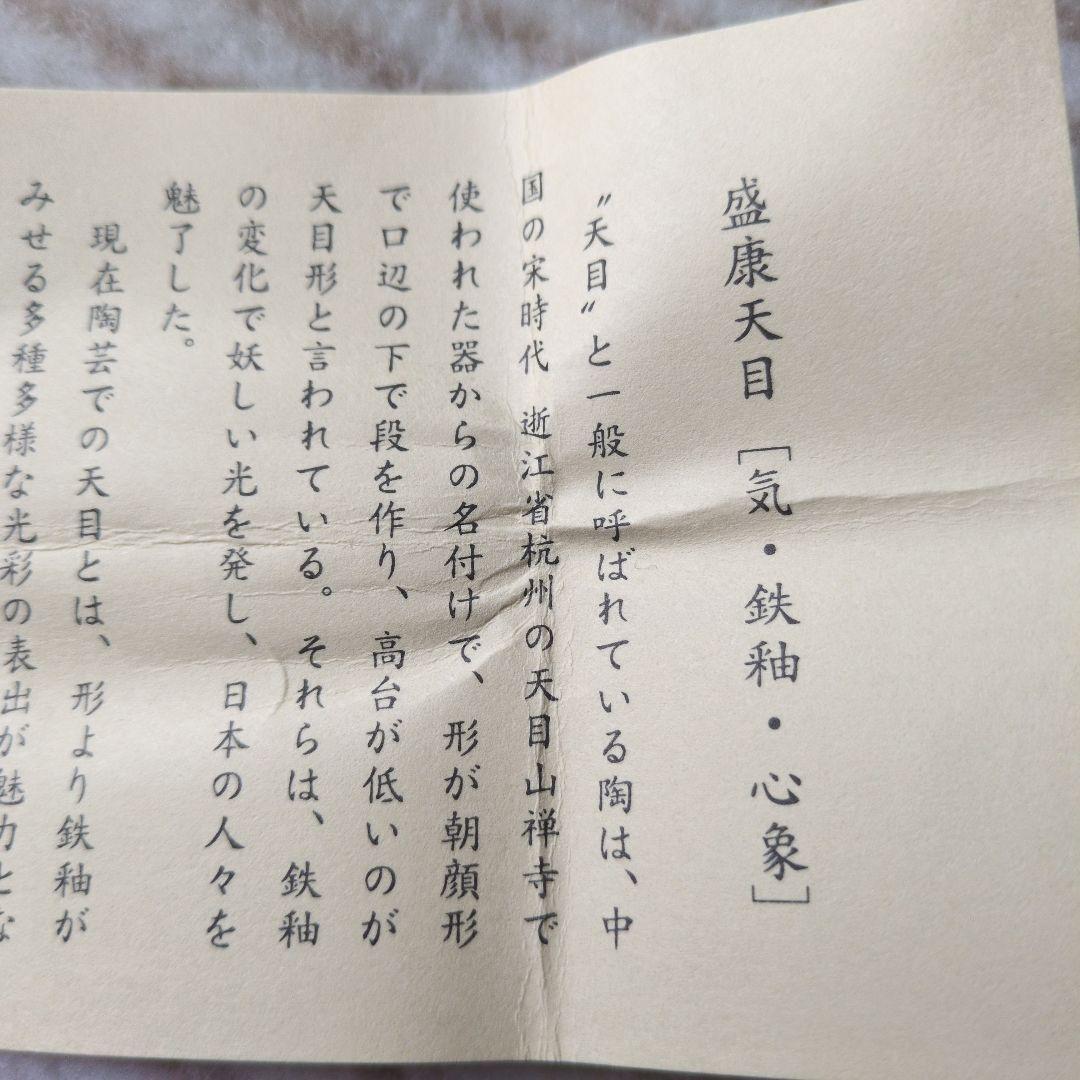 盛康天目 [気・鉄釉・心象]
〝天目〟と一般に呼ばれている陶は、中
国の宋時代 逝江省杭州の天目山禅寺で
使われた器からの名付けで、形が朝顔形
で口辺の下で段を作り、高台が低いのが
天目形と言われている。それらは、鉄釉
の変化で妖しい光を発し、日本の人々を
魅了した。
現在陶芸での天目とは、形より鉄釉が
みせる多種多様な光彩の表出が魅力とな